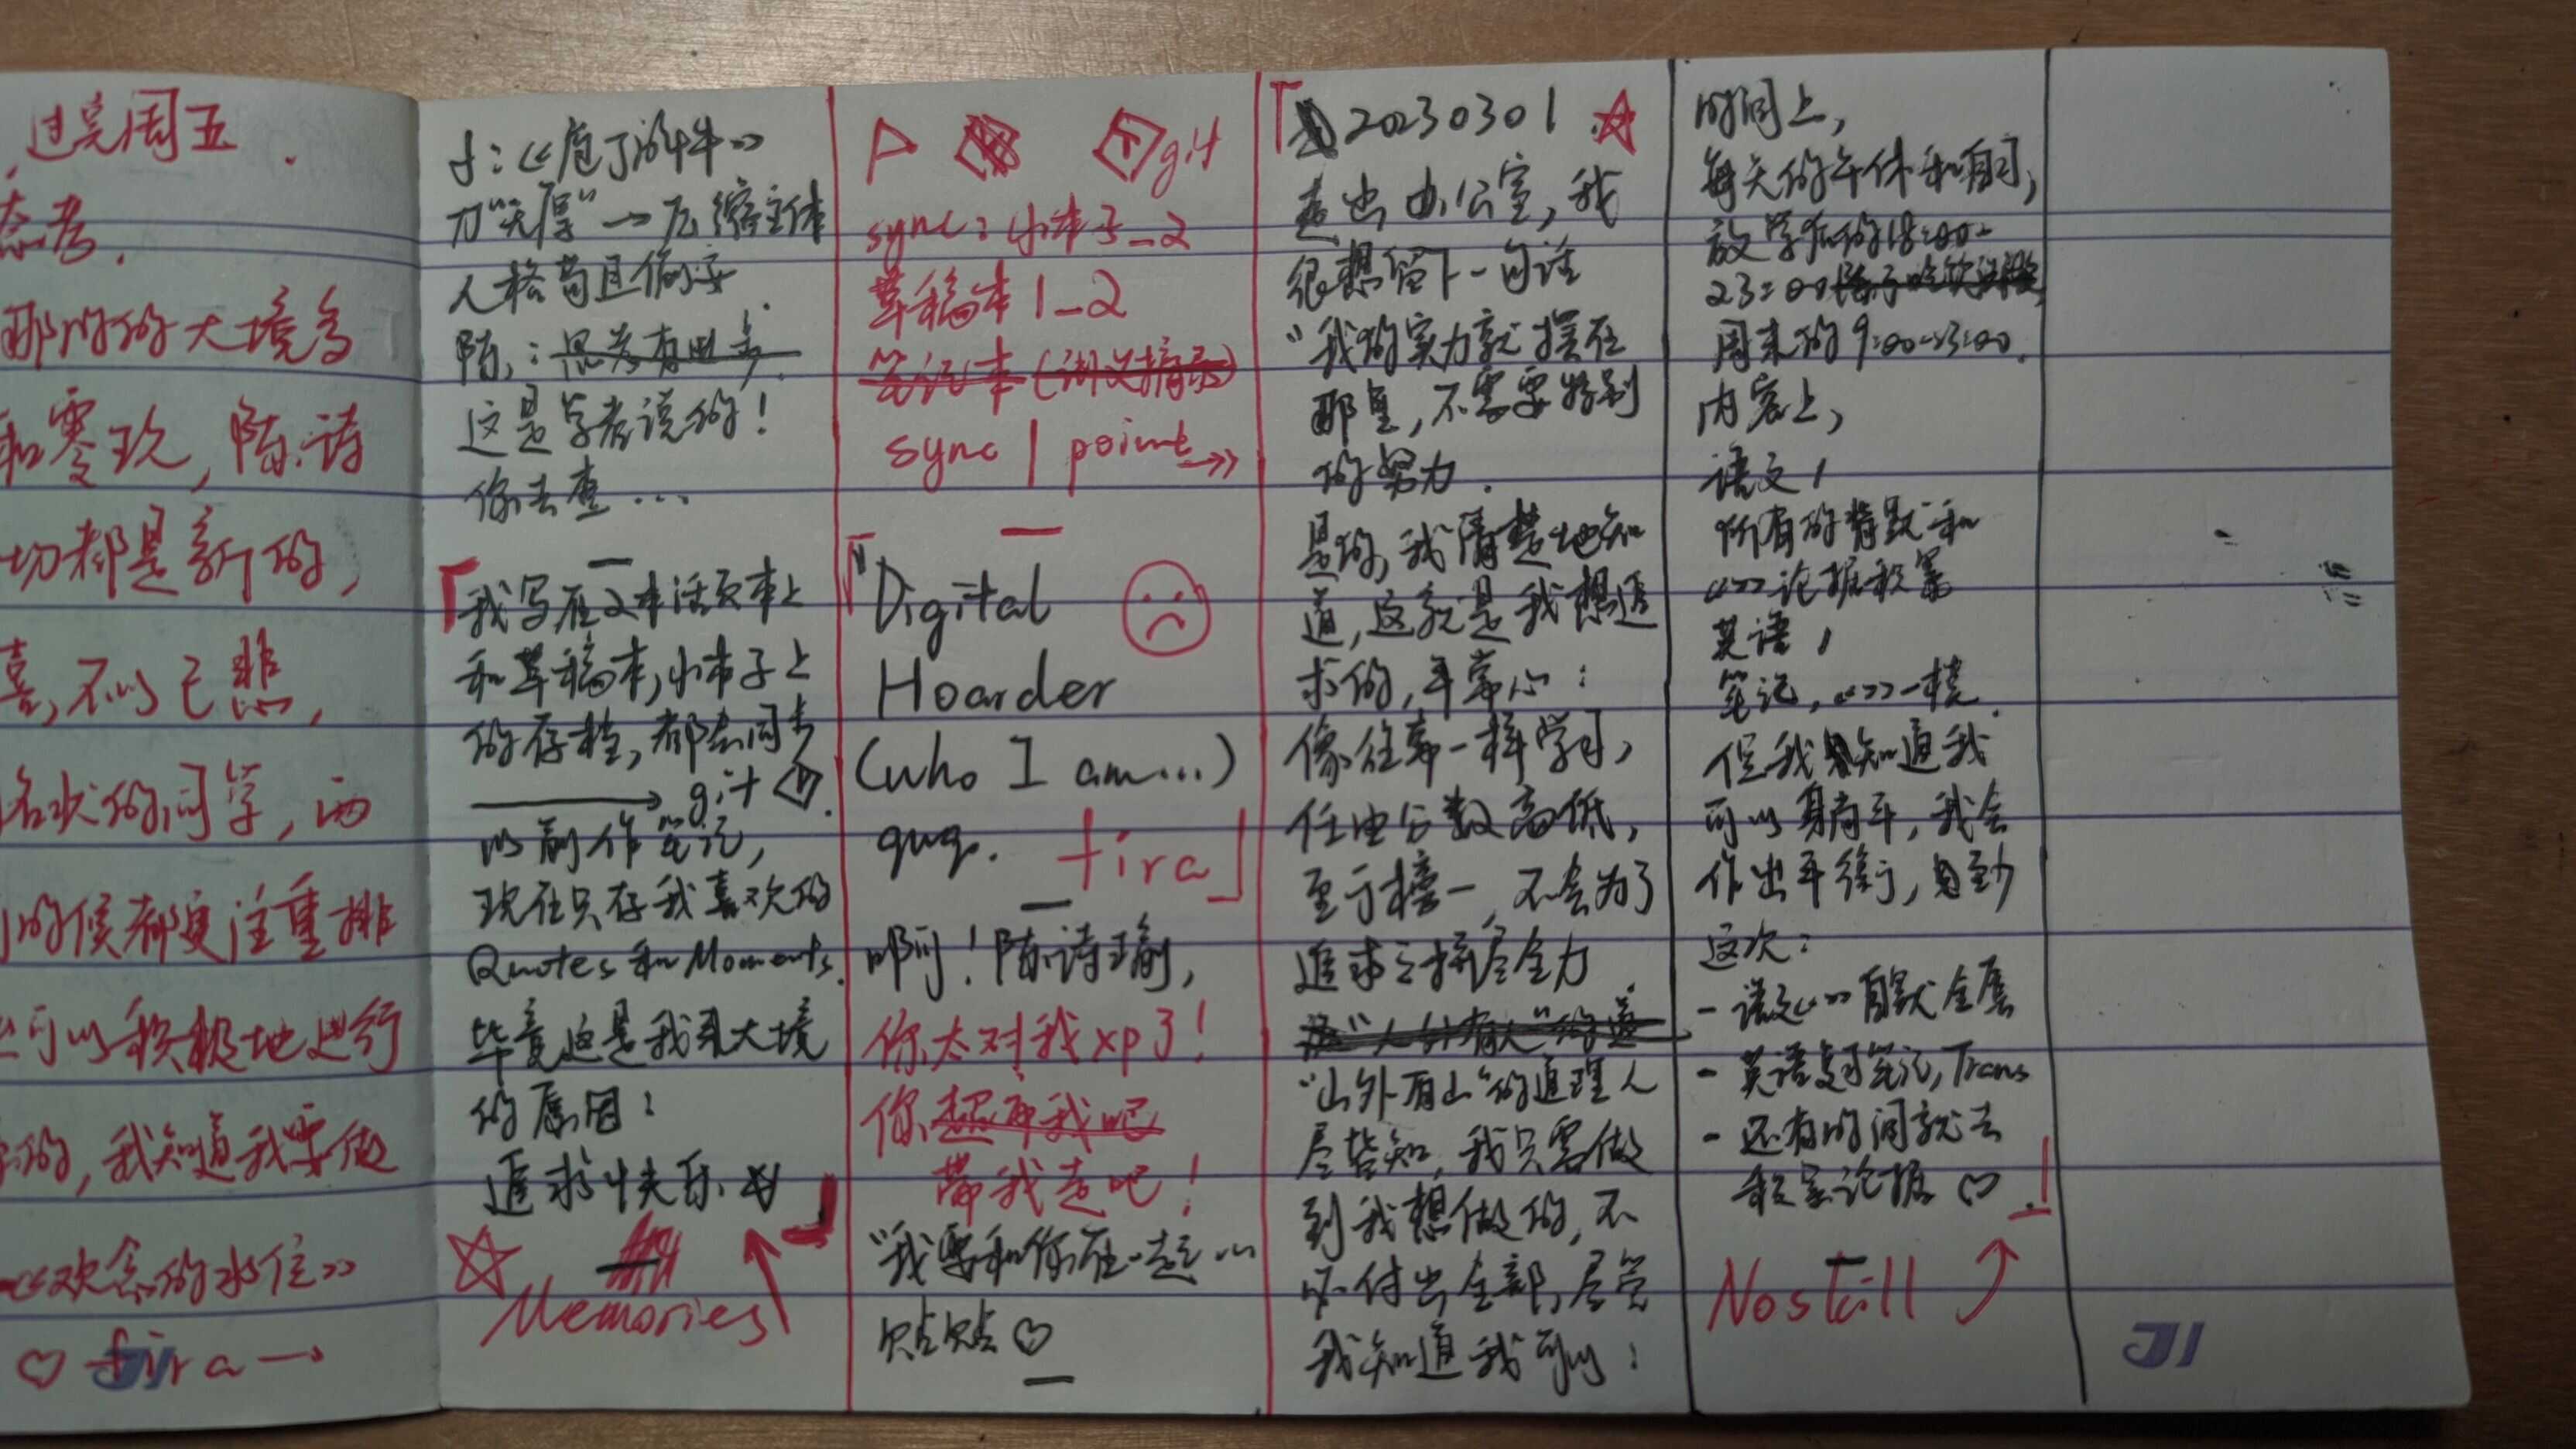 过完周五.
态考.
那时的大境多
和零玖,陈诗
切都是新的,
喜,不以己悲,
名次的同学,而
的候都更注重排
可以积极地进行
的,我知道我要做
♡ fira →
f:《庖丁解牛》
刀“无厚”→压缩主体
人格苟且偷安.
陈:思考有四多
这是学者说的!
你去查...
「我写在2本活页本上
和草稿本,小本子上
的存档,都去同步
→ git
以前作笔记,
现在只存我喜欢的
Quotes和Moments.
毕竟这是我来大境
的原因:
追求快乐.」
☆ Memories
git
sync:小本子_2
草稿本1_2
笔记本(讲义摘录)
sync 1 point →»
「Digital
Hoarder
(who I am...)
quq. fira」
啊!陈诗瑜,
你太对我xp了!
你
带我走吧!
“我要和你在一起...
贴贴♡
「20230301 ☆
走出办公室,我
很想留下一句话
“我的实力就摆在
那里,不需要特别
的努力.
是的,我清楚地知
道,这就是我想追
求的,平常心:
像往常一样学习,
任由分数高低,
至于榜一,不会为了
追求之拼尽全力
“人外有人”的道
“山外有山”的道理人
尽皆知,我只需做
到我想做的,不
必付出全部,尽管
我知道我可以:
时间上,
每天的午休和自习,
放学后的18:00-
23:00
周末的9:00-23:00.
内容上,
语文,
所有的背默和
《》论据积累
英语,
笔记,《》一模.
但我知道我
可以躺平,我会
作出平衡,至少
这次:
- 语文《》自默全屠
- 英语复习笔记,Trans
- 还有时间就去
积累论据♡.」
No skill
JI